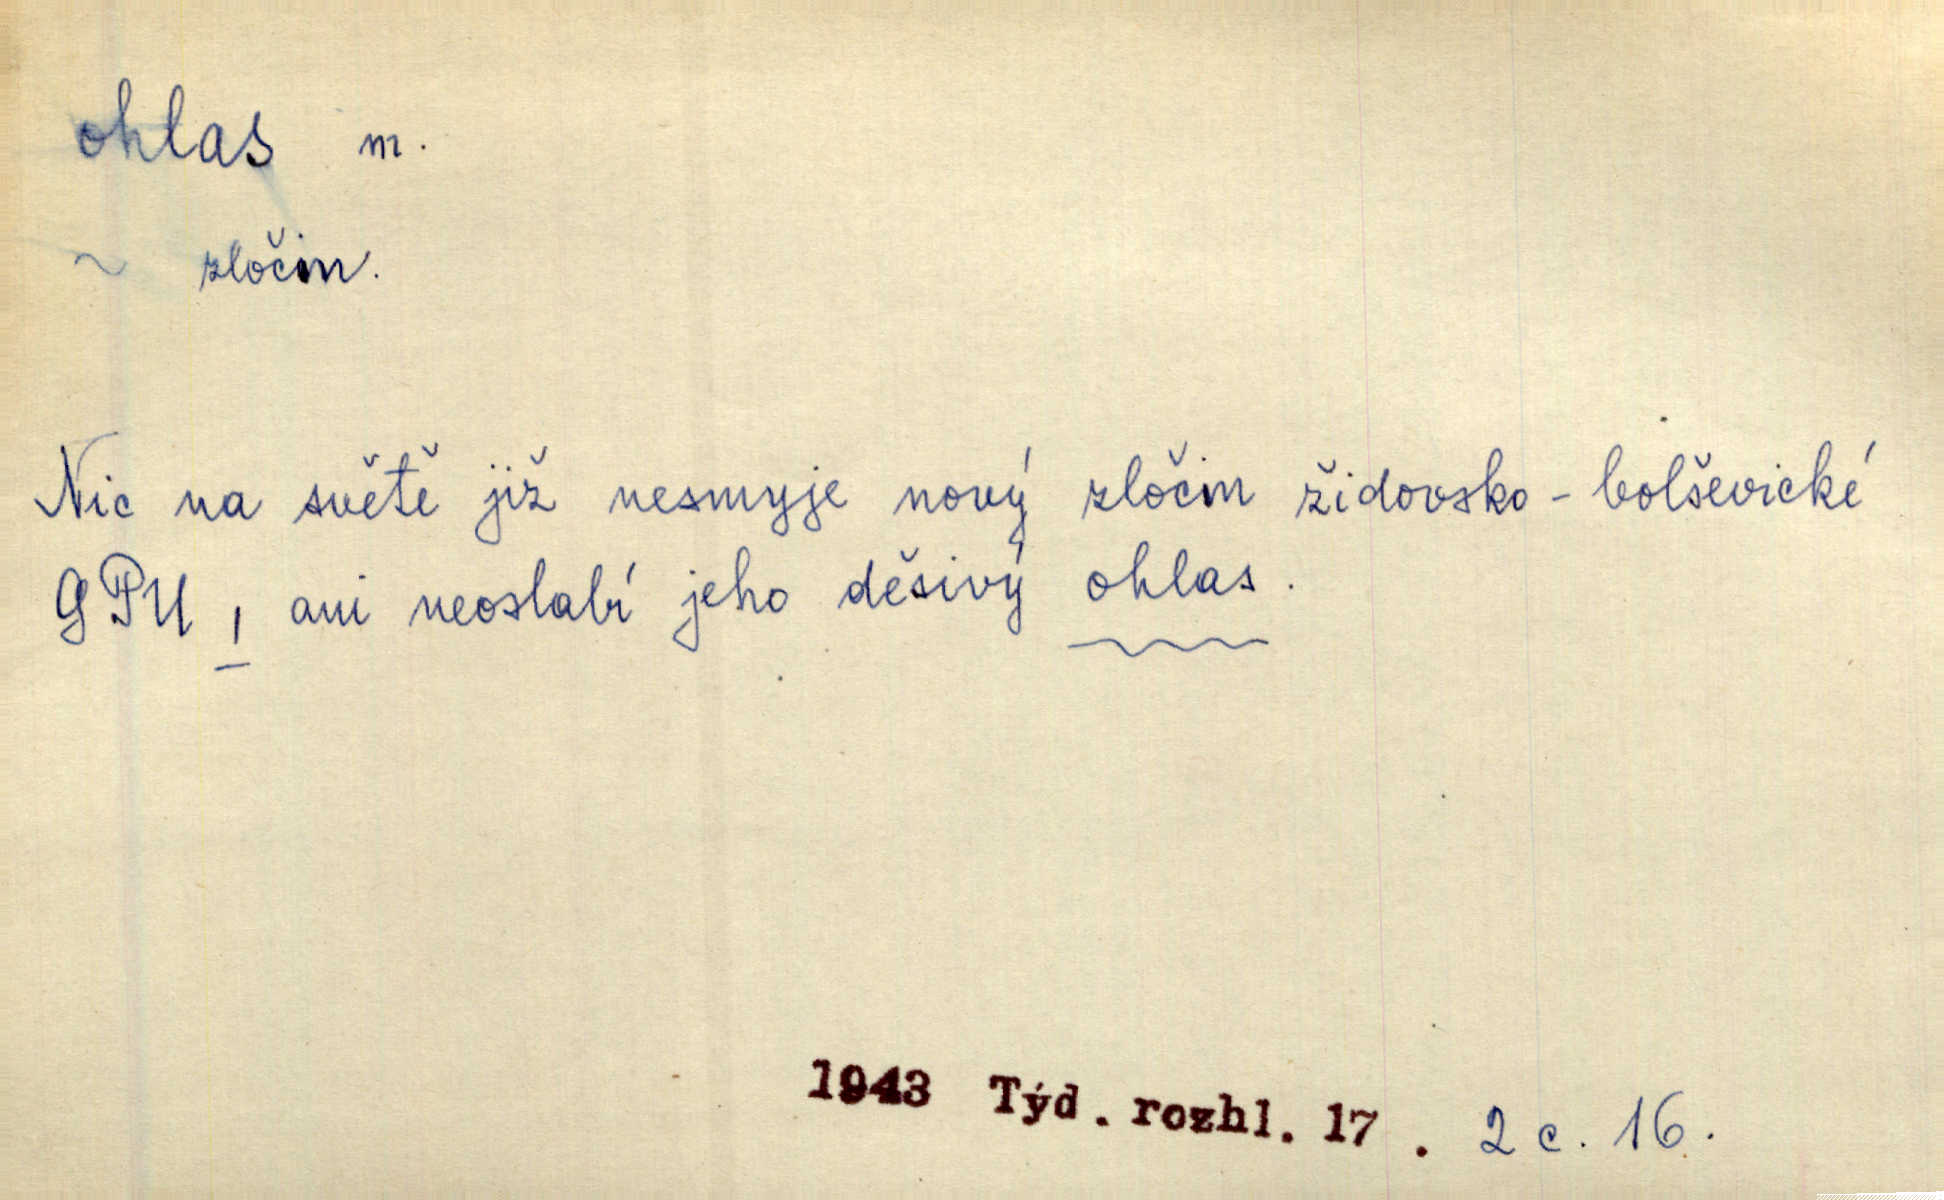 ohlas m.
~ zločin.
Nic na světě již nesmyje nový zločin židovsko-bolševické
GPU, ani neoslabí jeho děsivý ohlas.
1943 Týd. rozhl. 17. 2 c. 16.